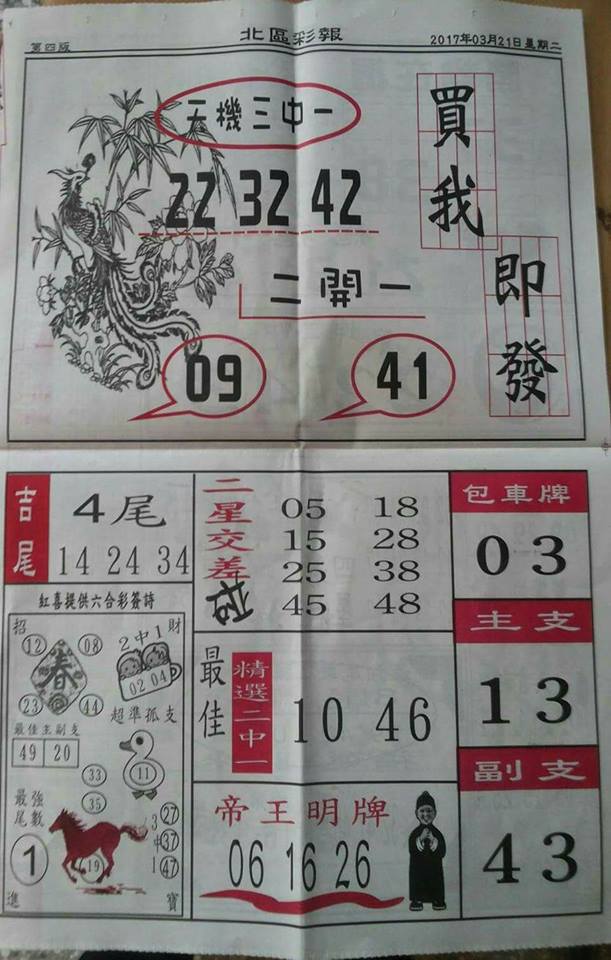 第四版 北區彩報 2017年03月21日星期二
天機三中一
22 32 42
二開一
09 41
買我
即發
吉尾
4尾
14 24 34
二星交差
05 18
15 28
25 38
45 48
包車牌
03
主支
13
副支
43
最佳
精選二中一
10 46
帝王明牌
06 16 26
紅喜提供六合彩簽詩
招 財
12 08
春
23 44
2中1
02 04
超準孤支
11
最佳主副支
49 20
33
35
最強尾數
1
19
3中1
27
37
47
進 寶